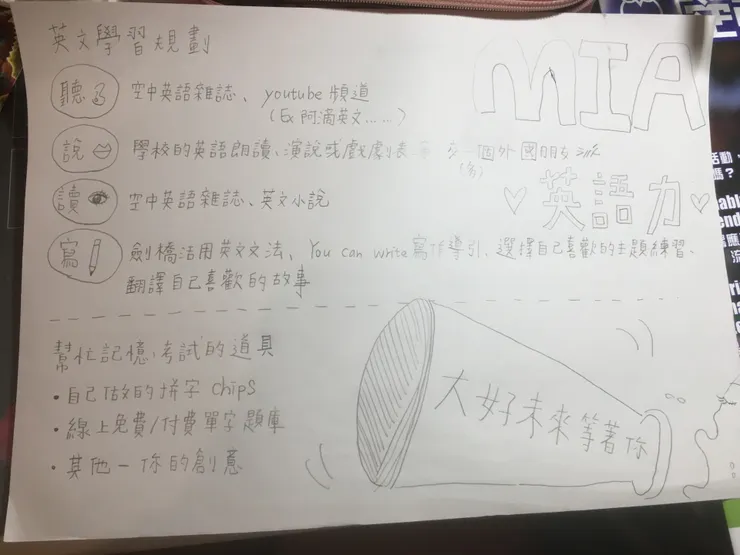 英文學習規劃
MIA
聽 空中英語雜誌、youtube 頻道
(Ex 阿滴英文......)
說 學校的英語朗讀、演說或戲劇 個外國朋友
讀 空中英語雜誌、英文小說
英語力
寫 劍橋活用英文文法、You can write 寫作導引、選擇自己喜歡的主題練習、
翻譯自己喜歡的故事
幫忙記憶、考試的道具
・自己做的拼字 chips
・線上免費/付費單字題庫
・其他一你的創意
大好未來等著你